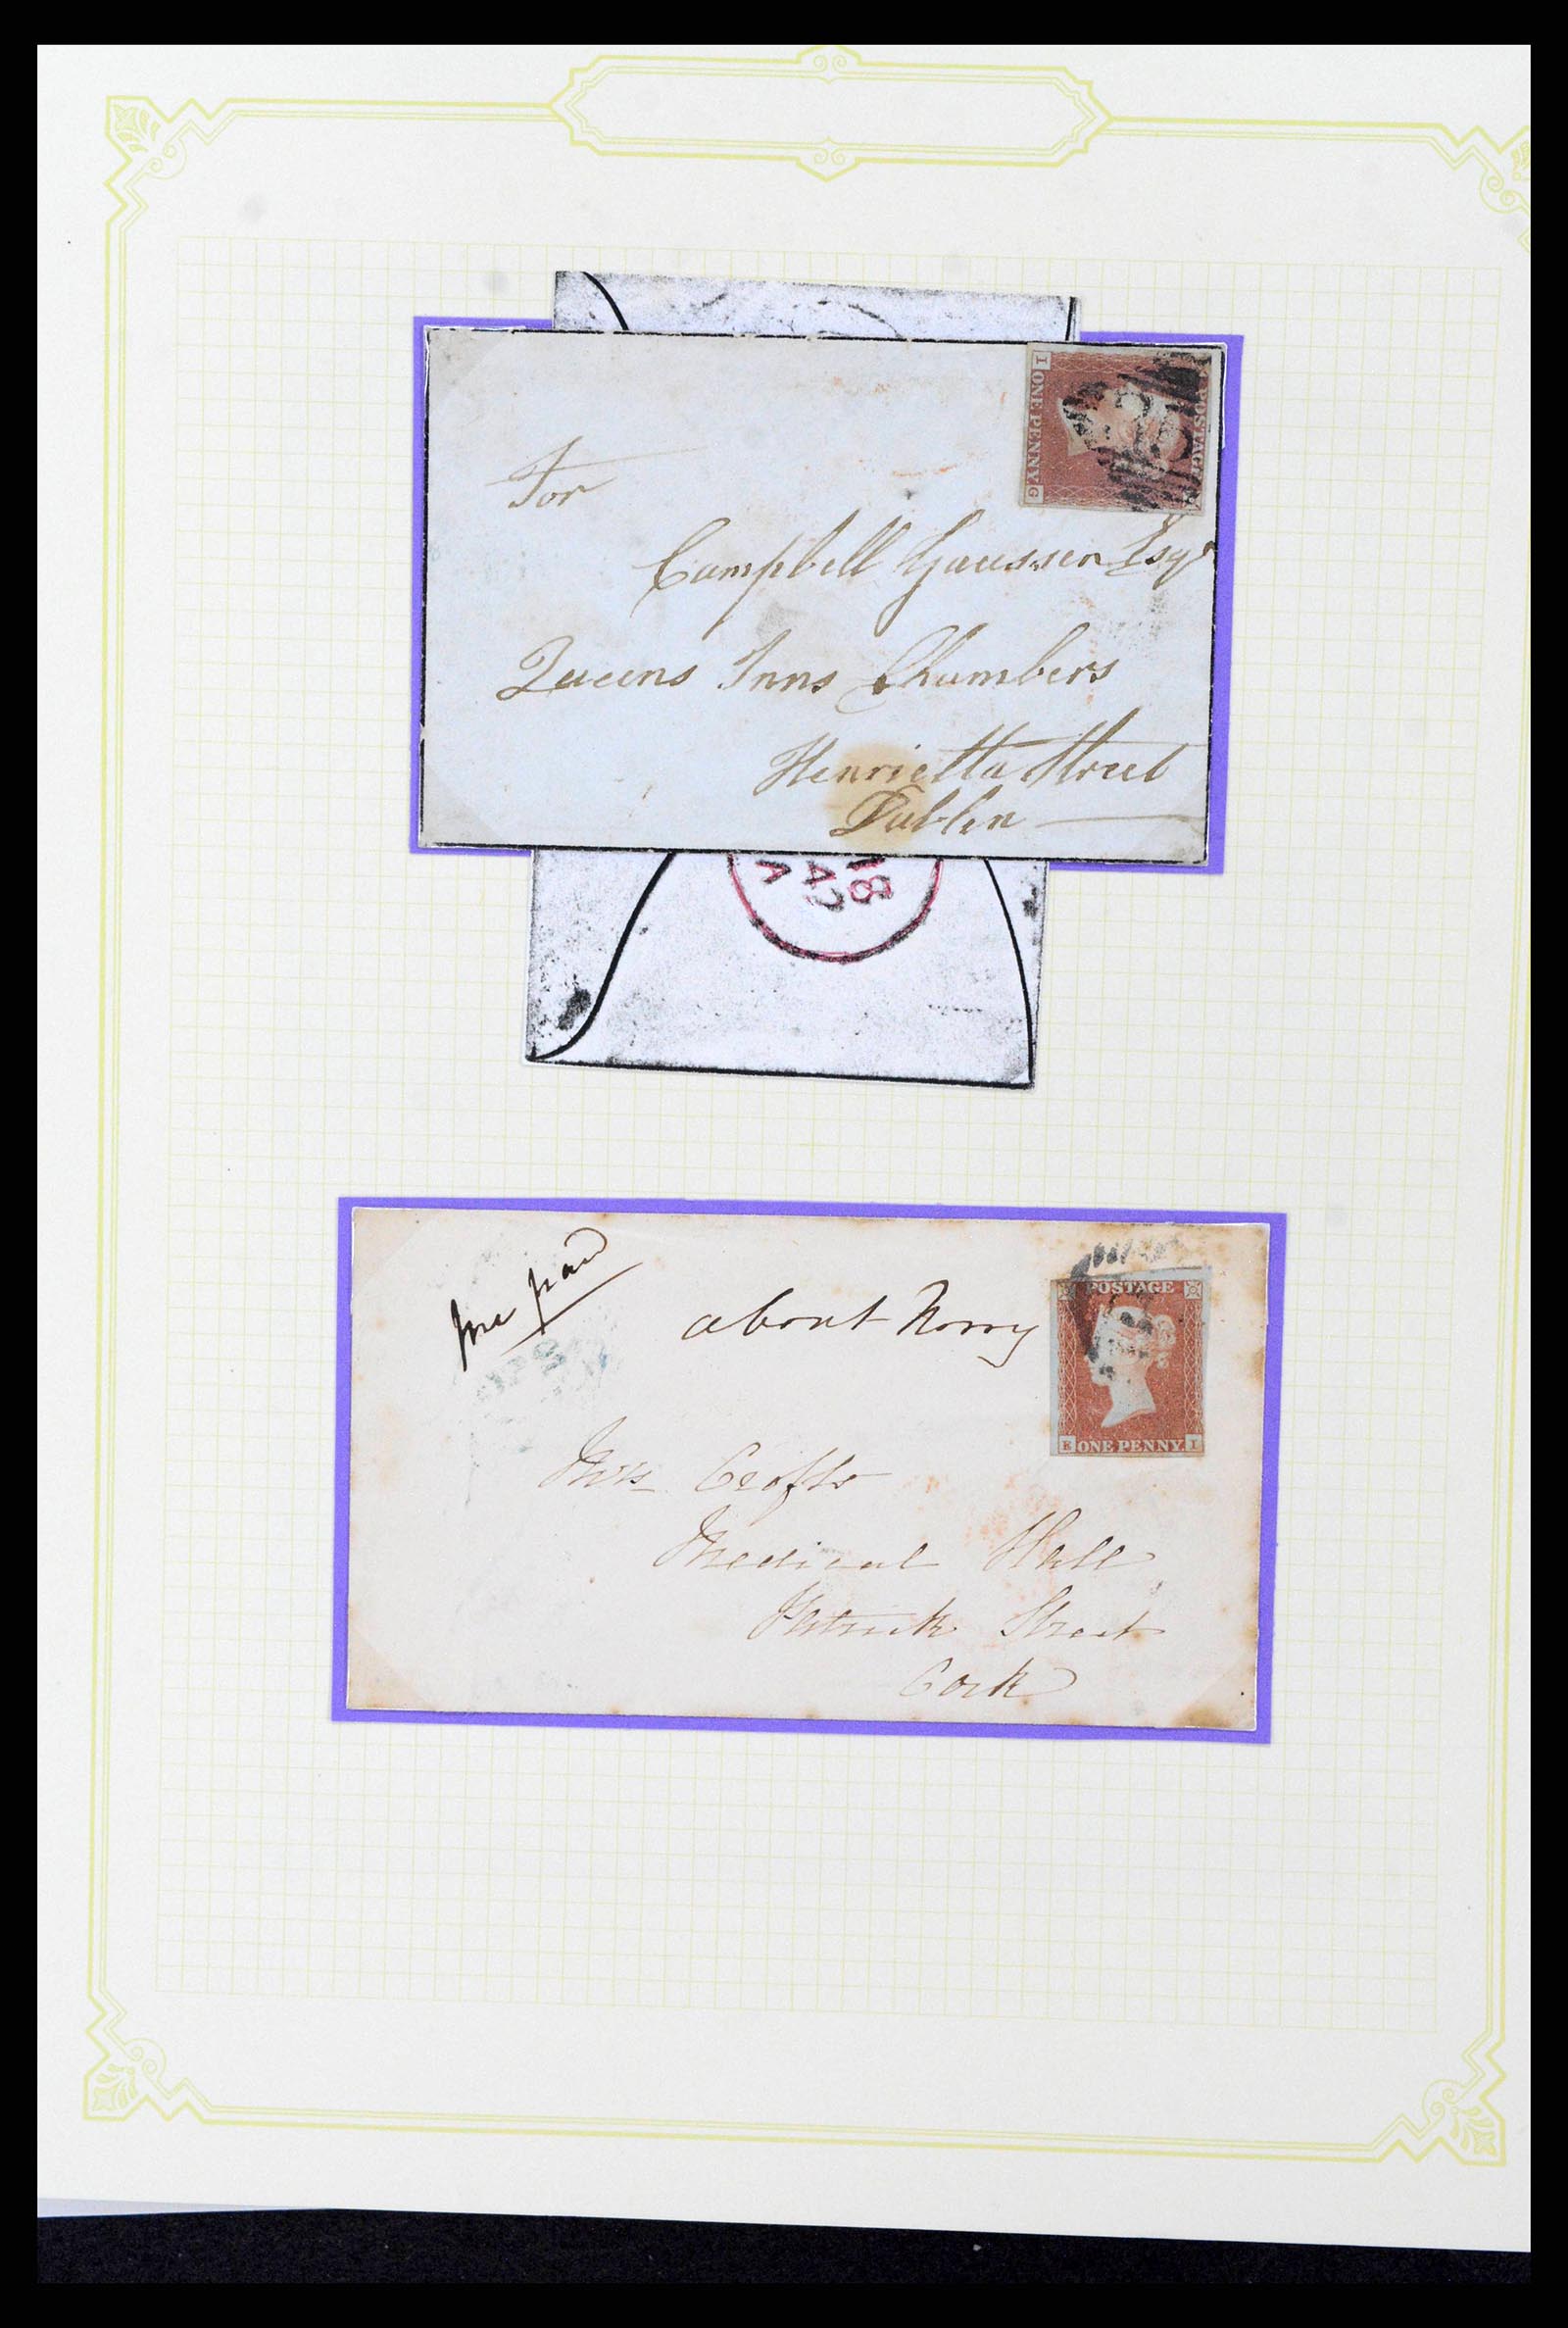 I ONE PENNY G
POSTAGE
For
Campbell Gaussen Esqr
Queens Inns Chambers
Henrietta Street
Dublin
18
42
A
pre paid
about Norry
POSTAGE
E ONE PENNY I
Mrs Crofts
Medical Hall
Patrick Street
Cork